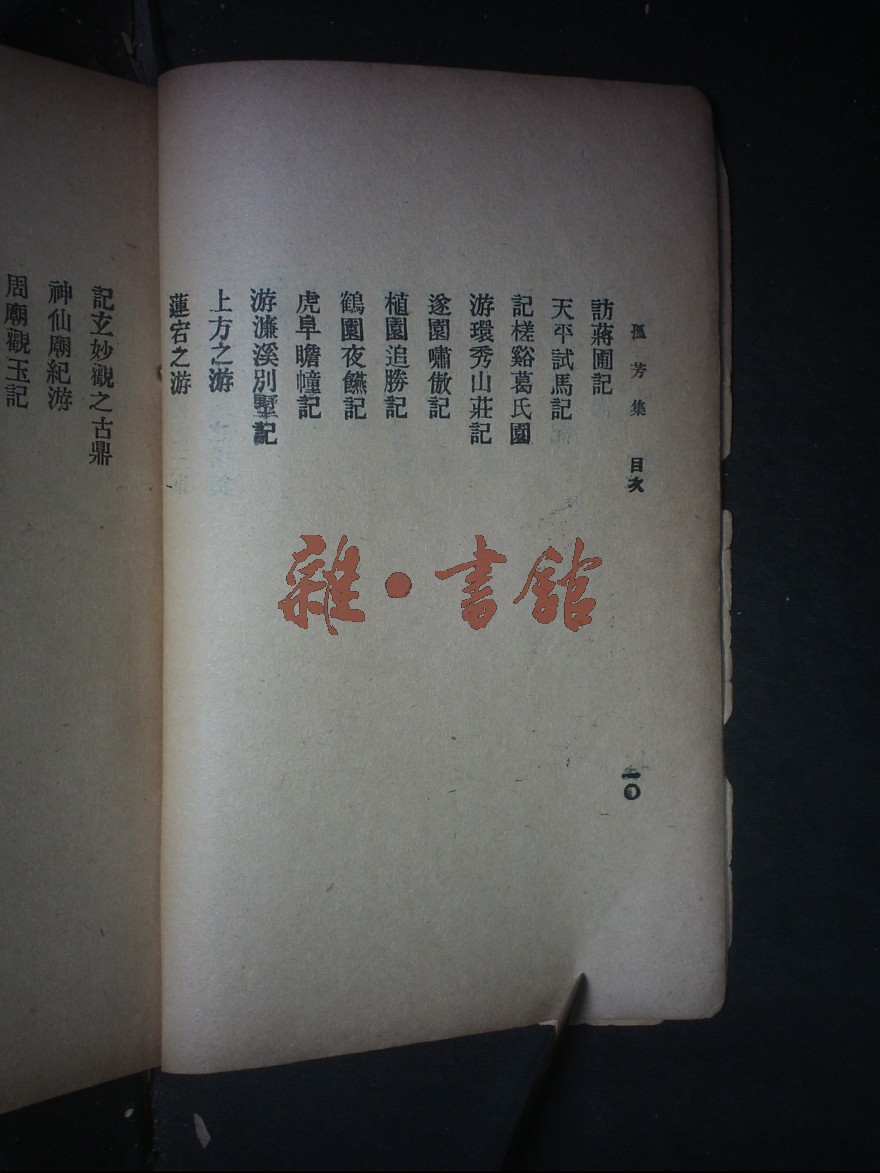 孤芳集 目次
訪蔣圃記
天平試馬記
記槎谿葛氏園
游環秀山莊記
遂園嘯傲記
植園追勝記
鶴園夜讌記
虎阜瞻幢記
游濂溪別墅記
上方之游
蓮宕之游
一〇
記玄妙觀之古鼎
神仙廟紀游
周廟觀玉記
雜·書館